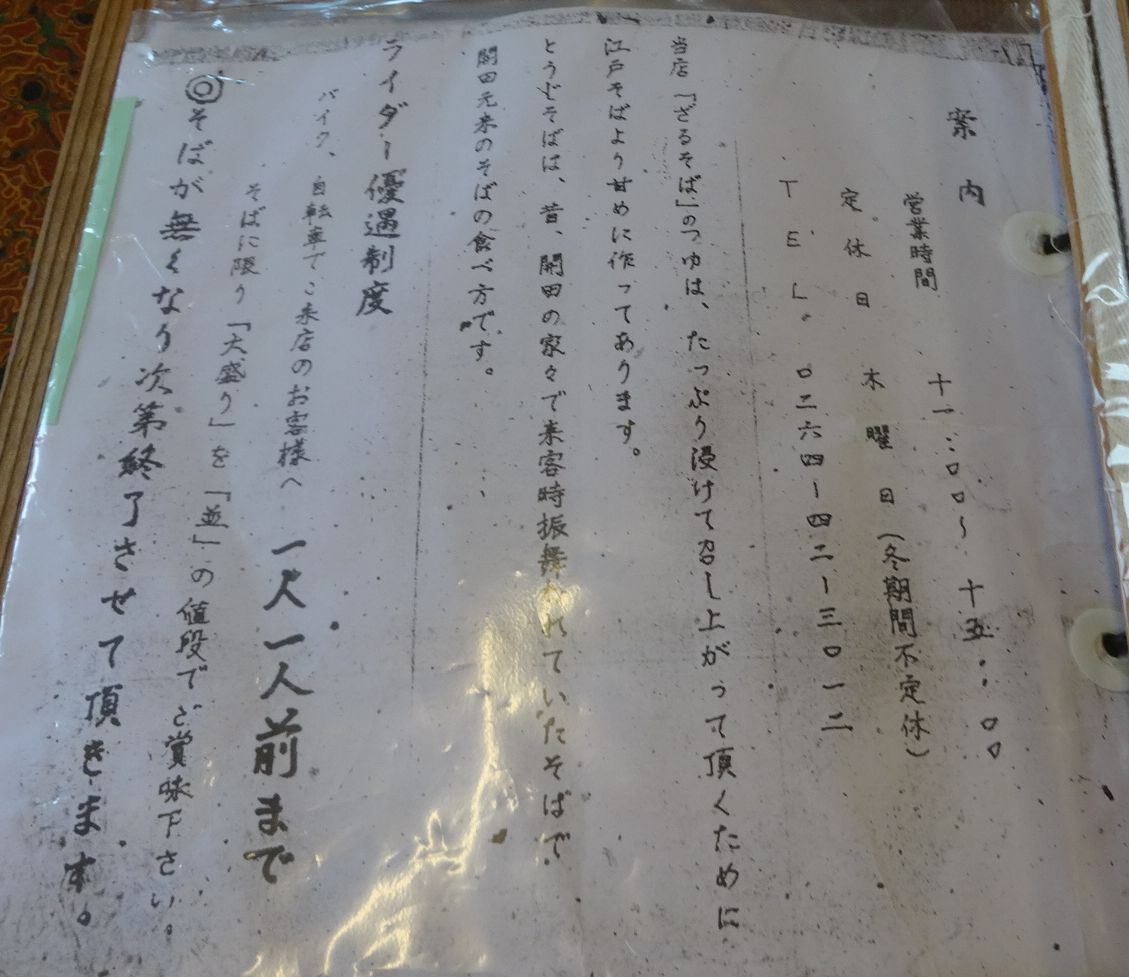 案内
営業時間 十一:00〜十五:00
定休日 木曜日(冬期間不定休)
TEL. 0二六四ー四二ー三0一二
当店「ざるそば」のつゆは、たっぷり浸けて召し上がって頂くために
江戸そばより甘めに作ってあります。
とうじそばは、昔、開田の家々で来客時振舞われていたそばで
開田元来のそばの食べ方です。
ライダー優遇制度
バイク、自転車でご来店のお客様へ 一人一人前まで
そばに限り「大盛り」を「並」の値段でご賞味下さい。
◎そばが無くなり次第終了させて頂きます。